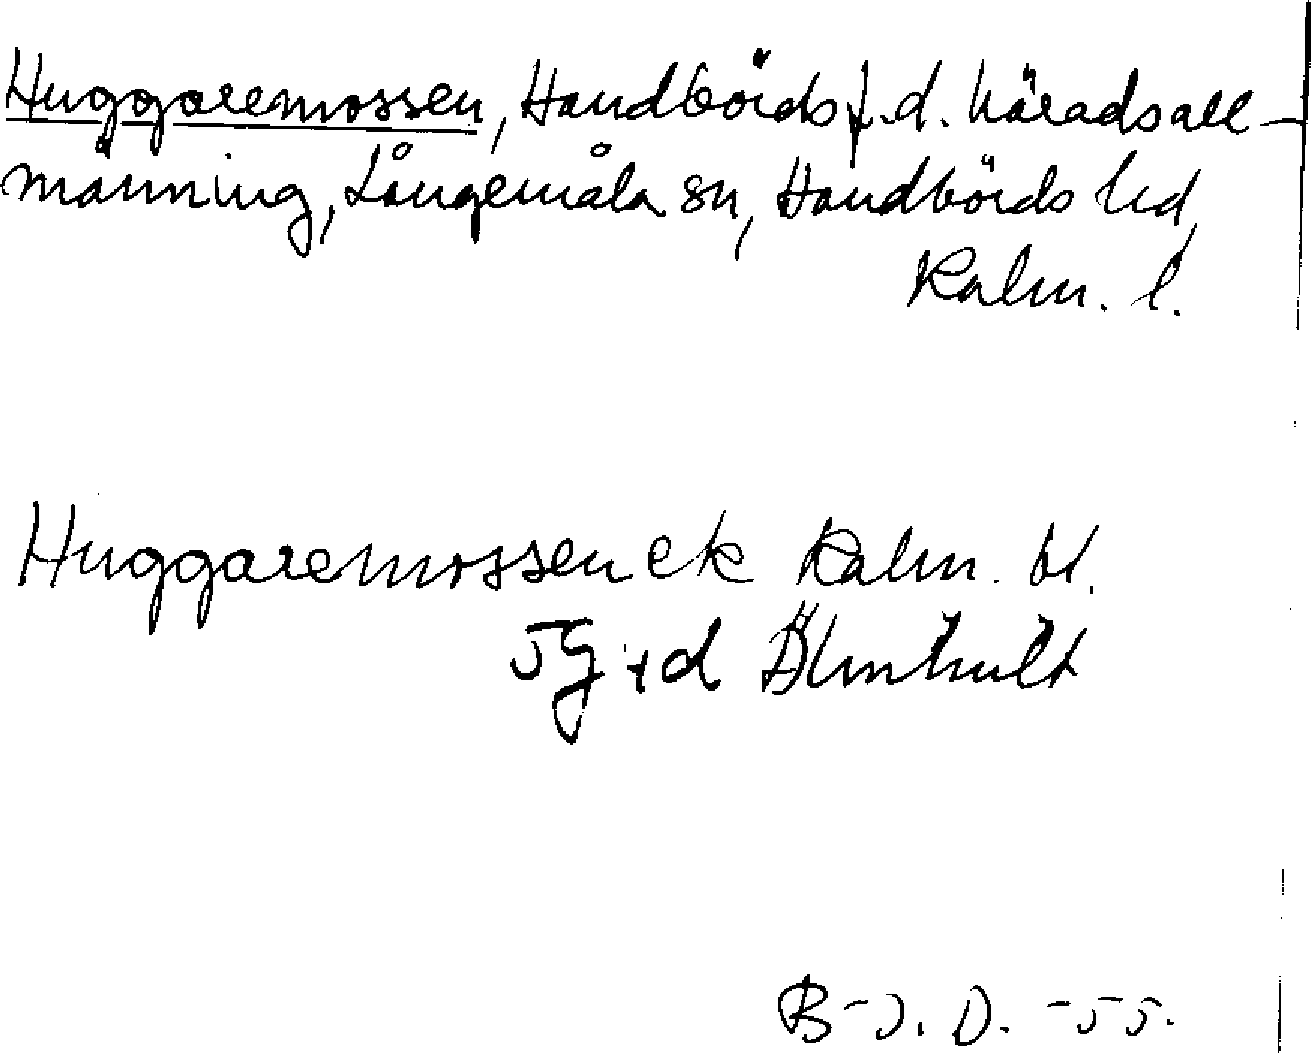 Huggaremossen, Handbörds f.d. häradsall-
männing, Långemåla sn, Handbörds hd,
Kalm. l.
Huggaremossen ek Kalm. bl.
5g+d Älmhult
B-J. D. -55.